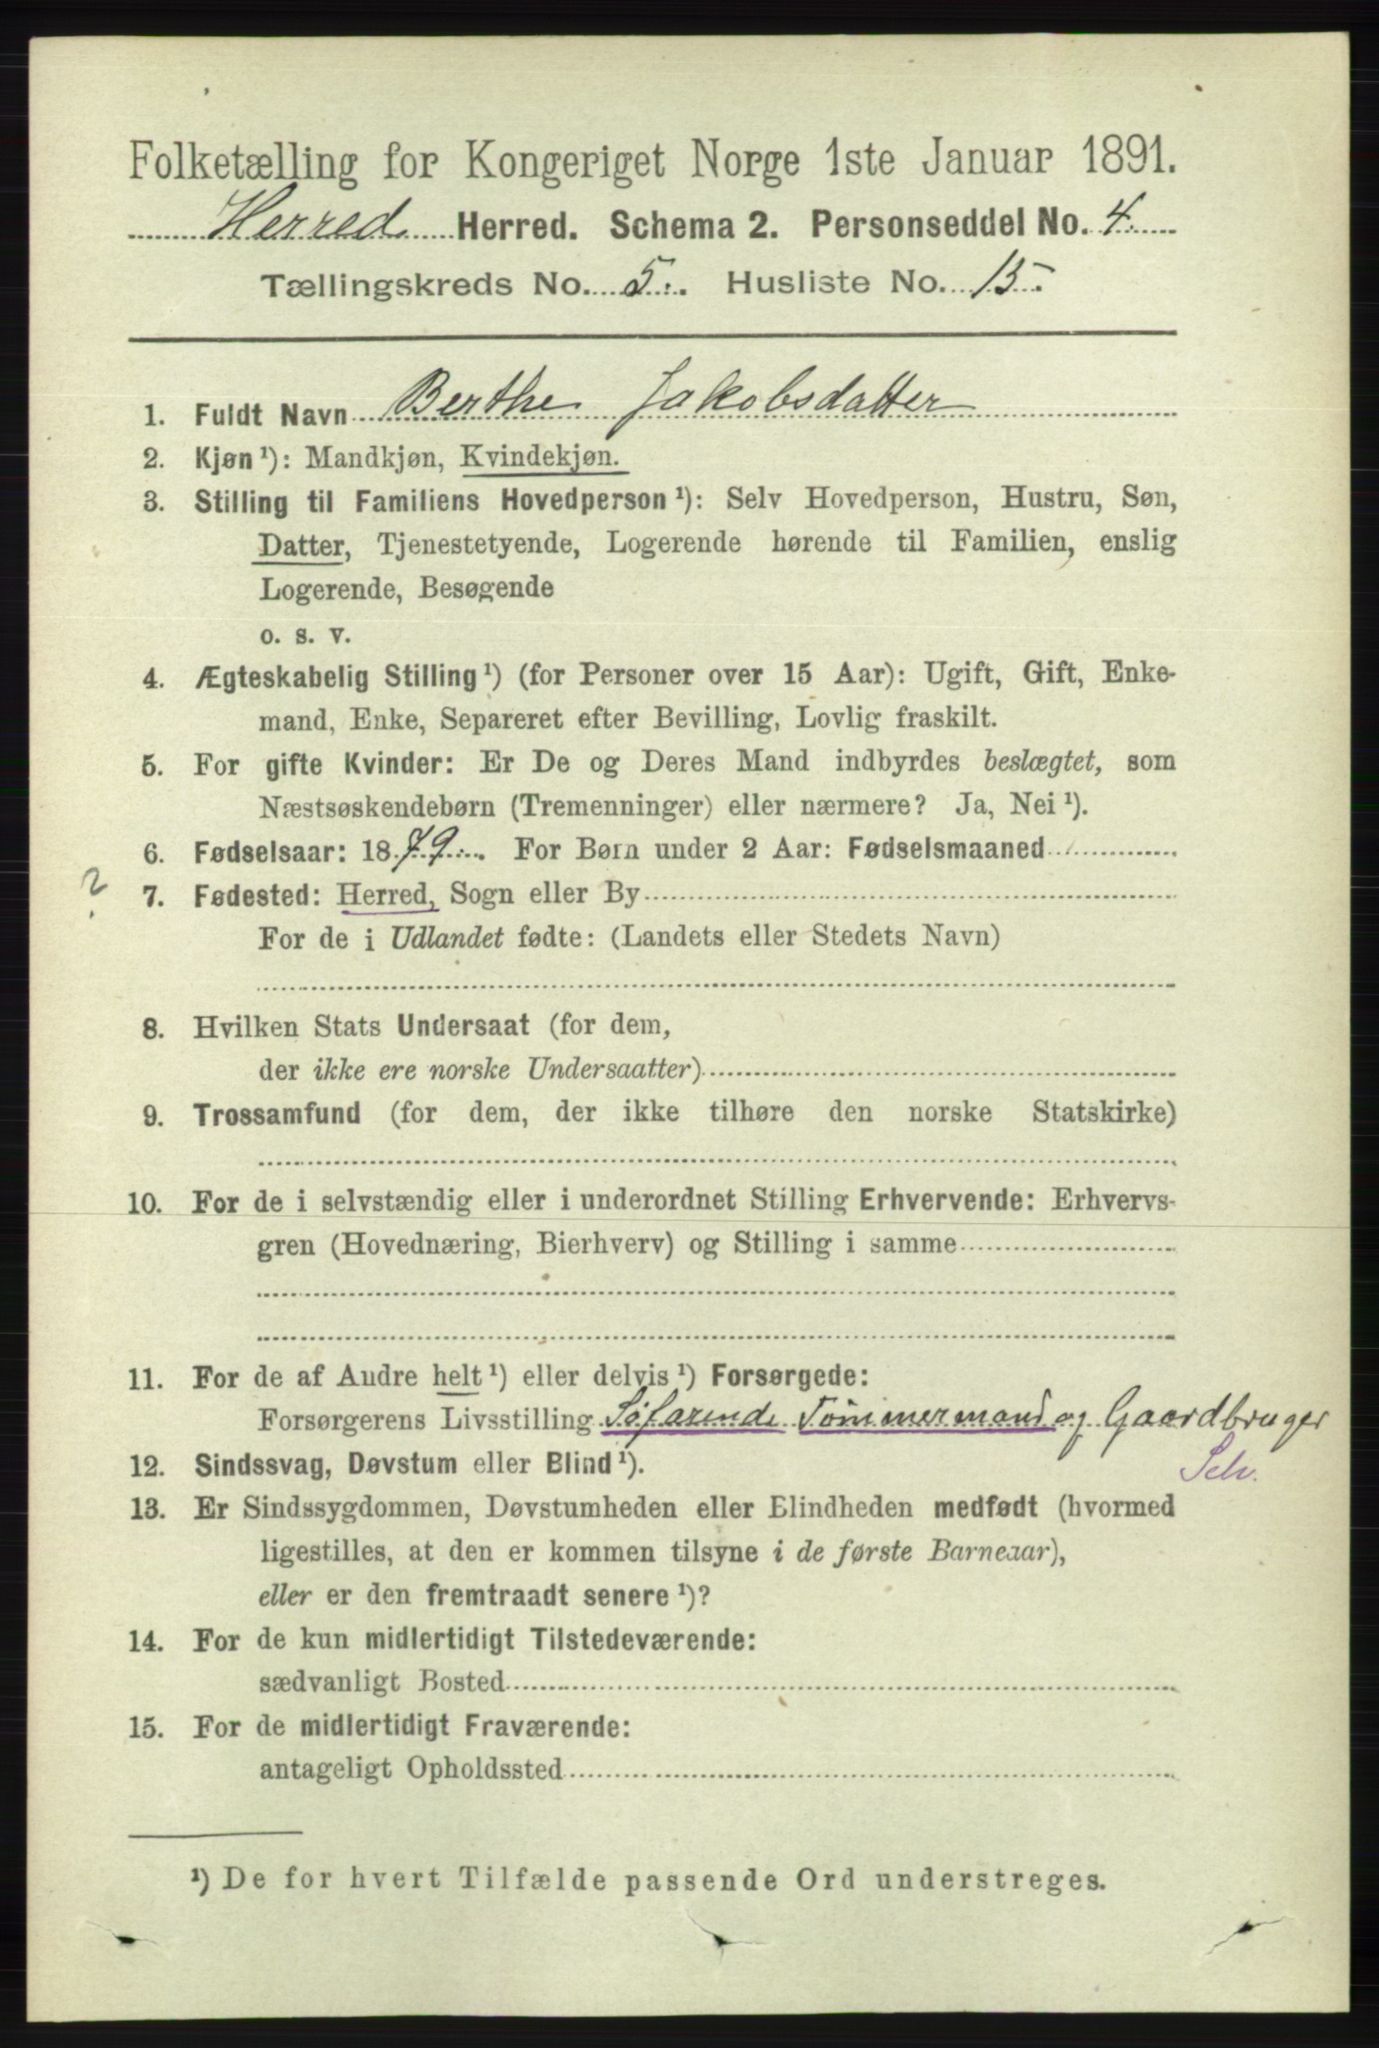 Folketælling for Kongeriget Norge 1ste Januar 1891.
Herred Herred. Schema 2. Personseddel No. 4.
Tællingskreds No. 5. Husliste No. 15
1. Fuldt Navn Berthe Jakobsdatter
2. Kjøn ¹): Mandkjøn, Kvindekjøn.
3. Stilling til Familiens Hovedperson ¹): Selv Hovedperson, Hustru, Søn,
Datter, Tjenestetyende, Logerende hørende til Familien, enslig
Logerende, Besøgende
o. s. v.
4. Ægteskabelig Stilling ¹) (for Personer over 15 Aar): Ugift, Gift, Enke-
mand, Enke, Separeret efter Bevilling, Lovlig fraskilt.
5. For gifte Kvinder: Er De og Deres Mand indbyrdes beslægtet, som
Næstsøskendebørn (Tremenninger) eller nærmere? Ja, Nei ¹).
6. Fødselsaar: 1879. For Børn under 2 Aar: Fødselsmaaned
? 7. Fødested: Herred, Sogn eller By
For de i Udlandet fødte: (Landets eller Stedets Navn)
8. Hvilken Stats Undersaat (for dem,
der ikke ere norske Undersaatter)
9. Trossamfund (for dem, der ikke tilhøre den norske Statskirke)
10. For de i selvstændig eller i underordnet Stilling Erhvervende: Erhvervs-
gren (Hovednæring, Bierhverv) og Stilling i samme
11. For de af Andre helt ¹) eller delvis ¹) Forsørgede:
Forsørgerens Livsstilling Søfarende Tømmermand og Gaardbruger
12. Sindssvag, Døvstum eller Blind ¹). Selv.
13. Er Sindssygdommen, Døvstumheden eller Blindheden medfødt (hvormed
ligestilles, at den er kommen tilsyne i de første Barneaar),
eller er den fremtraadt senere ¹)?
14. For de kun midlertidigt Tilstedeværende:
sædvanligt Bosted
15. For de midlertidigt Fraværende:
antageligt Opholdssted
¹) De for hvert Tilfælde passende Ord understreges.